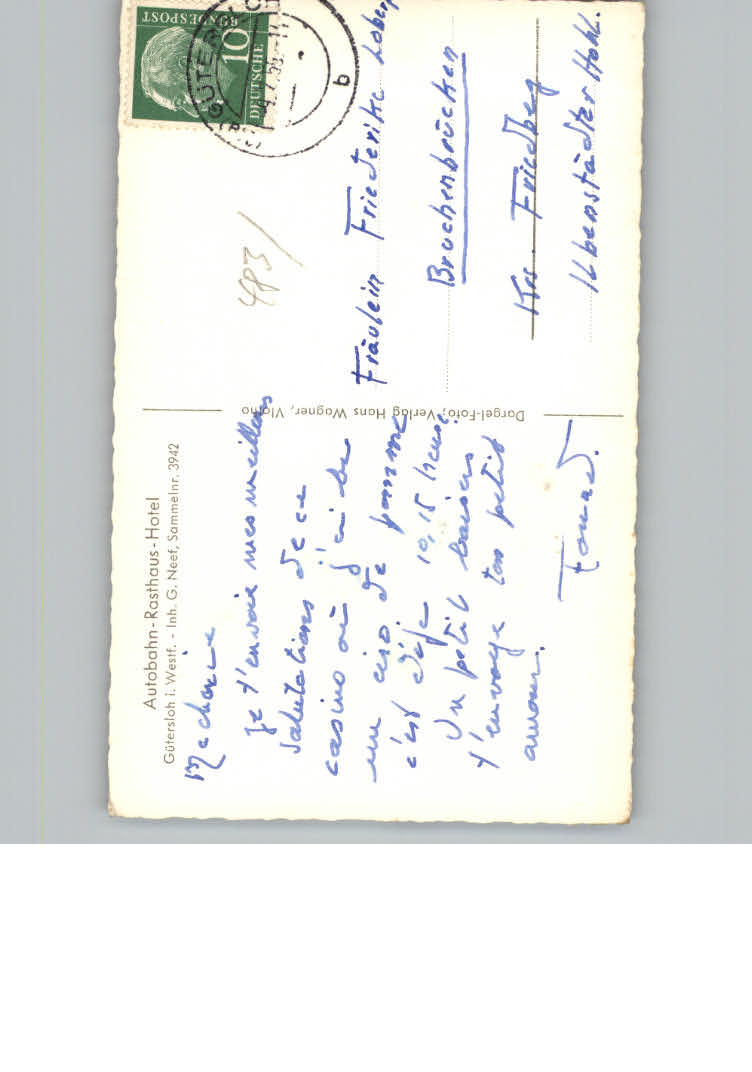 Autobahn-Rasthaus-Hotel
Gütersloh i. Westf. - Inh. G. Neef, Sammelnr. 3942
Ma cherie
je t'envoie mes meilleurs
salutations de ce
casino où j'ai bu
un jus de pomme
c'est déja 10,15 heure.
Un petit baiser
t'envoye ton petit
amour.
Dargel-Foto, Verlag Hans Wagner, Vlotho
DEUTSCHE
BUNDESPOST
10
GÜTERSLOH
b
483/
Fräulein Friederike
Bruchenbrücken
Krs. Friedberg
Ilbenstädter Hohl.